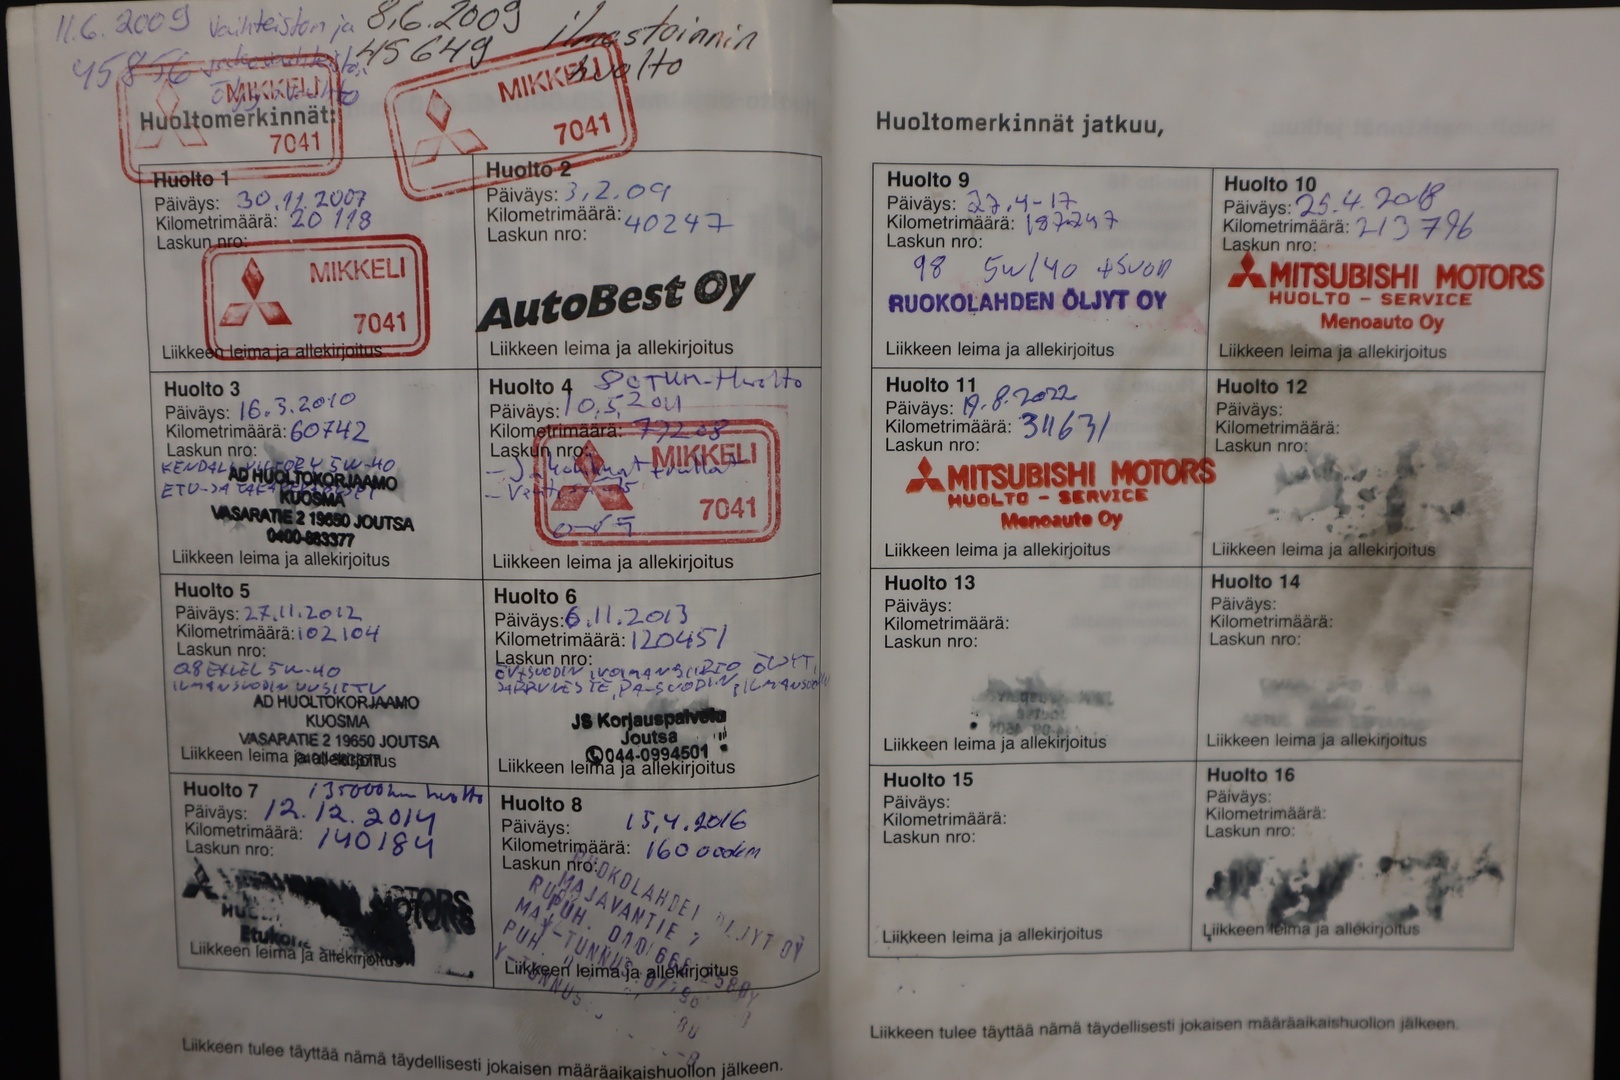 11.6.2009 Vaihteiston ja
45856
öljyn vaihto
8.6.2009 ilmastoinnin
45649 huolto
MIKKELI
7041
MIKKELI
7041
Huoltomerkinnät:
Huolto 1
Päiväys: 30.11.2007
Kilometrimäärä: 20 118
Laskun nro:
MIKKELI
7041
Liikkeen leima ja allekirjoitus
Huolto 2
Päiväys: 3.2.09
Kilometrimäärä: 40247
Laskun nro:
AutoBest Oy
Liikkeen leima ja allekirjoitus
Huolto 3
Päiväys: 16.3.2010
Kilometrimäärä: 60742
Laskun nro:
KENDALL 5W-40
ETU-JA
AD HUOLTOKORJAAMO
KUOSMA
VASARATIE 2 19650 JOUTSA
0400-883377
Liikkeen leima ja allekirjoitus
Huolto 4 80TKM-Huolto
Päiväys: 10.5.2011
Kilometrimäärä: 79208
Laskun nro:
MIKKELI
7041
Liikkeen leima ja allekirjoitus
Huolto 5
Päiväys: 27.11.2012
Kilometrimäärä: 102104
Laskun nro:
Q8 EXCEL 5W-40
ILMANSUODIN UUSITTU
AD HUOLTOKORJAAMO
KUOSMA
VASARATIE 2 19650 JOUTSA
Liikkeen leima ja allekirjoitus
Huolto 6
Päiväys: 6.11.2013
Kilometrimäärä: 120451
Laskun nro:
ÖV+SUODIN, VOIMANSIIRTO ÖLJYT,
JARRUNESTE, PA-SUODIN, ILMANSUODIN
JS Korjauspalvelu
Joutsa
044-0994501
Liikkeen leima ja allekirjoitus
Huolto 7 135000km huolto
Päiväys: 12.12.2014
Kilometrimäärä: 140184
Laskun nro:
MOTORS
Liikkeen leima ja allekirjoitus
Huolto 8
Päiväys: 15.4.2016
Kilometrimäärä: 160 000km
Laskun nro:
RUOKOLAHDEN ÖLJYT OY
MAJAVANTIE 7
PUH. 010/666
Y-TUNNUS
Liikkeen leima ja allekirjoitus
Liikkeen tulee täyttää nämä täydellisesti jokaisen määräaikaishuollon jälkeen.
Huoltomerkinnät jatkuu,
Huolto 9
Päiväys: 27.4-17
Kilometrimäärä: 187247
Laskun nro:
98 5W/40 +Suod
RUOKOLAHDEN ÖLJYT OY
Liikkeen leima ja allekirjoitus
Huolto 10
Päiväys: 25.4.2018
Kilometrimäärä: 213796
Laskun nro:
MITSUBISHI MOTORS
HUOLTO - SERVICE
Menoauto Oy
Liikkeen leima ja allekirjoitus
Huolto 11
Päiväys: 19.8.2022
Kilometrimäärä: 311631
Laskun nro:
MITSUBISHI MOTORS
HUOLTO - SERVICE
Menoauto Oy
Liikkeen leima ja allekirjoitus
Huolto 12
Päiväys:
Kilometrimäärä:
Laskun nro:
Liikkeen leima ja allekirjoitus
Huolto 13
Päiväys:
Kilometrimäärä:
Laskun nro:
Liikkeen leima ja allekirjoitus
Huolto 14
Päiväys:
Kilometrimäärä:
Laskun nro:
Liikkeen leima ja allekirjoitus
Huolto 15
Päiväys:
Kilometrimäärä:
Laskun nro:
Liikkeen leima ja allekirjoitus
Huolto 16
Päiväys:
Kilometrimäärä:
Laskun nro:
Liikkeen leima ja allekirjoitus
Liikkeen tulee täyttää nämä täydellisesti jokaisen määräaikaishuollon jälkeen.